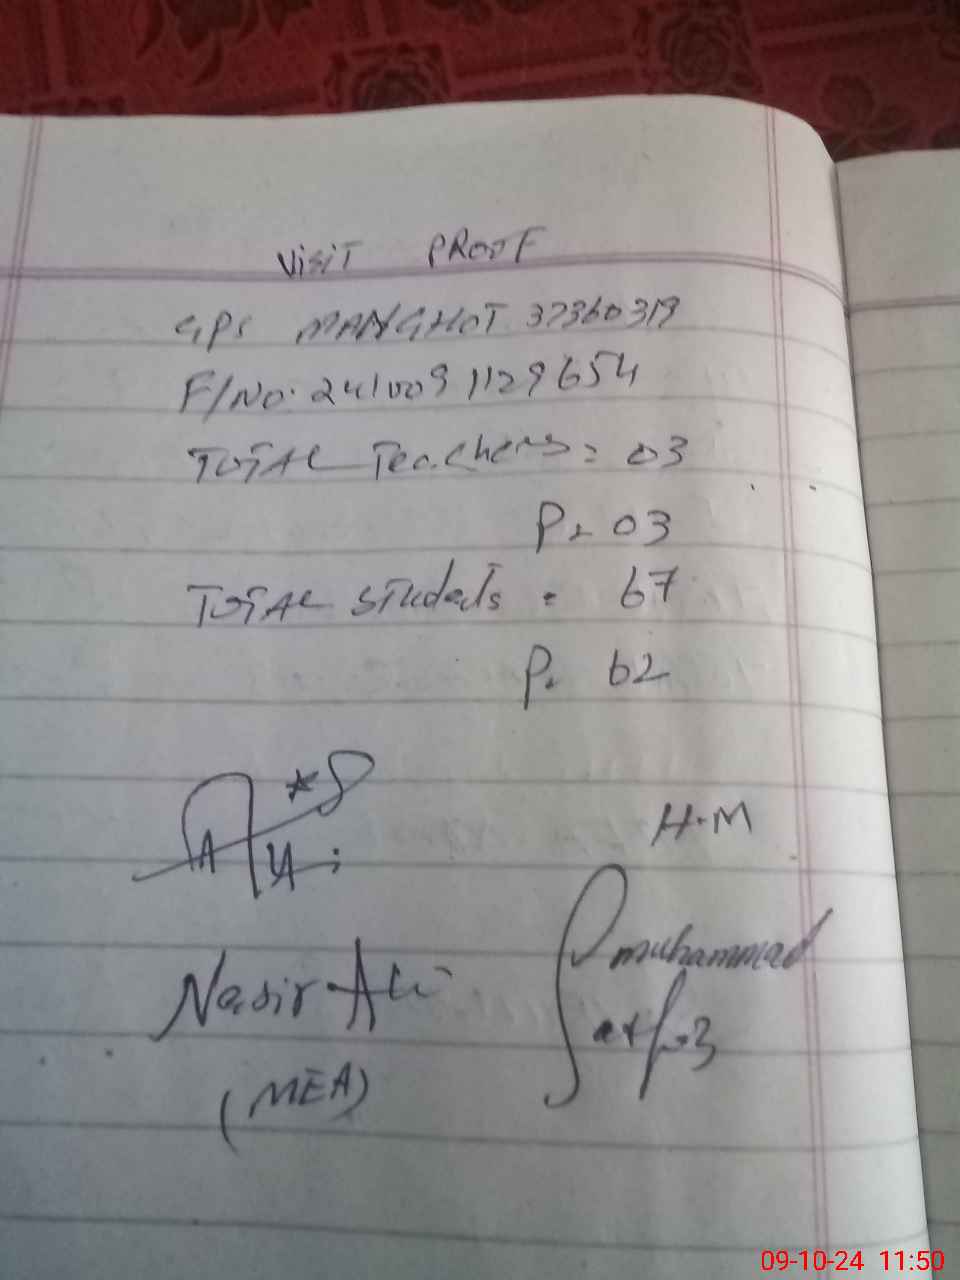 Visit PROOF
GPS MANGHOT 37360319
F/No. 241009 1129654
TOTAL Teachers = 03
P= 03
TOTAL Students = 67
P= 62
H.M
Muhammad
Nasir Ali
(MEA)
09-10-24 11:50